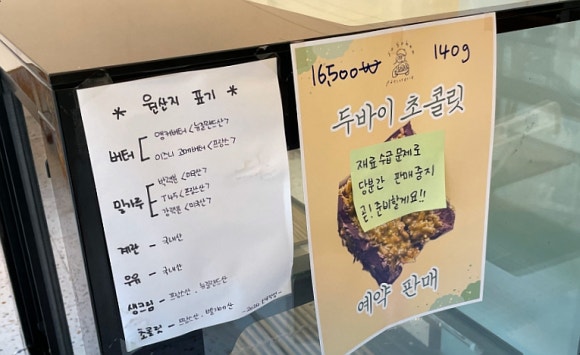 * 원산지 표기 *
버터 앵커버터<뉴질랜드산>
이즈니 고메버터<프랑스>
밀가루 박력분<미국산>
T45<프랑스>
강력분<미국산>
계란 - 국내산
우유 - 국내산
생크림 - 프랑스산 ·
초콜릿 - 프랑스산 · 벨기에산
16,500₩ 140g
두바이 초콜릿
재료수급문제로
당분간 판매중지
곧! 준비할게요!!
예약 판매